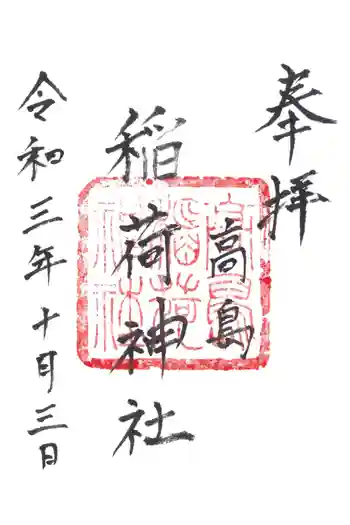 奉拝
高島
稲荷神社
令和三年十月三日